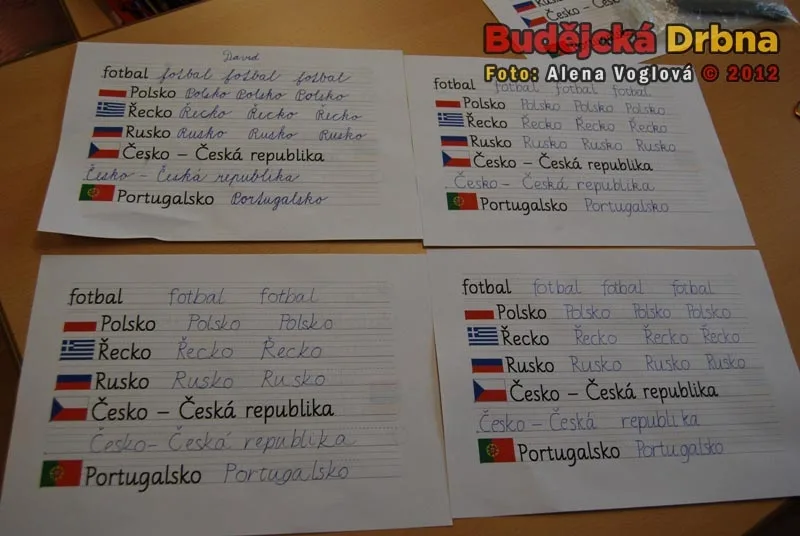 Budějcká Drbna
Foto: Alena Voglová © 2012
Česko – Če
David
fotbal fotbal fotbal fotbal
Polsko Polsko Polsko Polsko
Řecko Řecko Řecko Řecko
Rusko Rusko Rusko Rusko
Česko – Česká republika
Česko – Česká republika
Portugalsko Portugalsko
fotbal fotbal fotbal fotbal
Polsko Polsko Polsko Polsko
Řecko Řecko Řecko Řecko
Rusko Rusko Rusko Rusko
Česko – Česká republika
Česko – Česká republika
Portugalsko Portugalsko
fotbal fotbal fotbal
Polsko Polsko Polsko
Řecko Řecko Řecko
Rusko Rusko Rusko
Česko – Česká republika
Česko – Česká republika
Portugalsko Portugalsko
fotbal fotbal fotbal fotbal
Polsko Polsko Polsko Polsko
Řecko Řecko Řecko Řecko
Rusko Rusko Rusko Rusko
Česko – Česká republika
Česko – Česká republika
Portugalsko Portugalsko